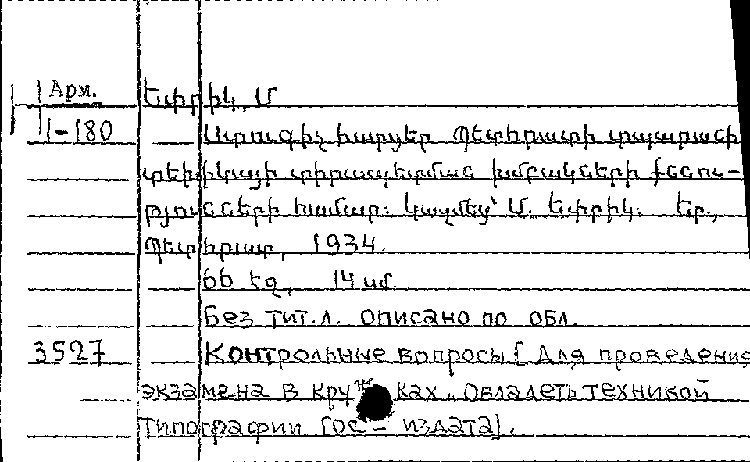 Арм. Եփրիկ, Մ
1-180 Ստուգիչ հարցեր Պետհրատի տպարանի
տեխնիկայի տիրապետման խմբակների քննու-
թյունների համար: Կազմեց՝ Մ. Եփրիկ: Եր.,
Պետհրատ, 1934.
66 էջ, 14 սմ.
Без тит.л. описано по обл.
3527 Контрольные вопросы [Для проведение
экзамена в кружках „Овладеть техникой
типографии Гос-издата].